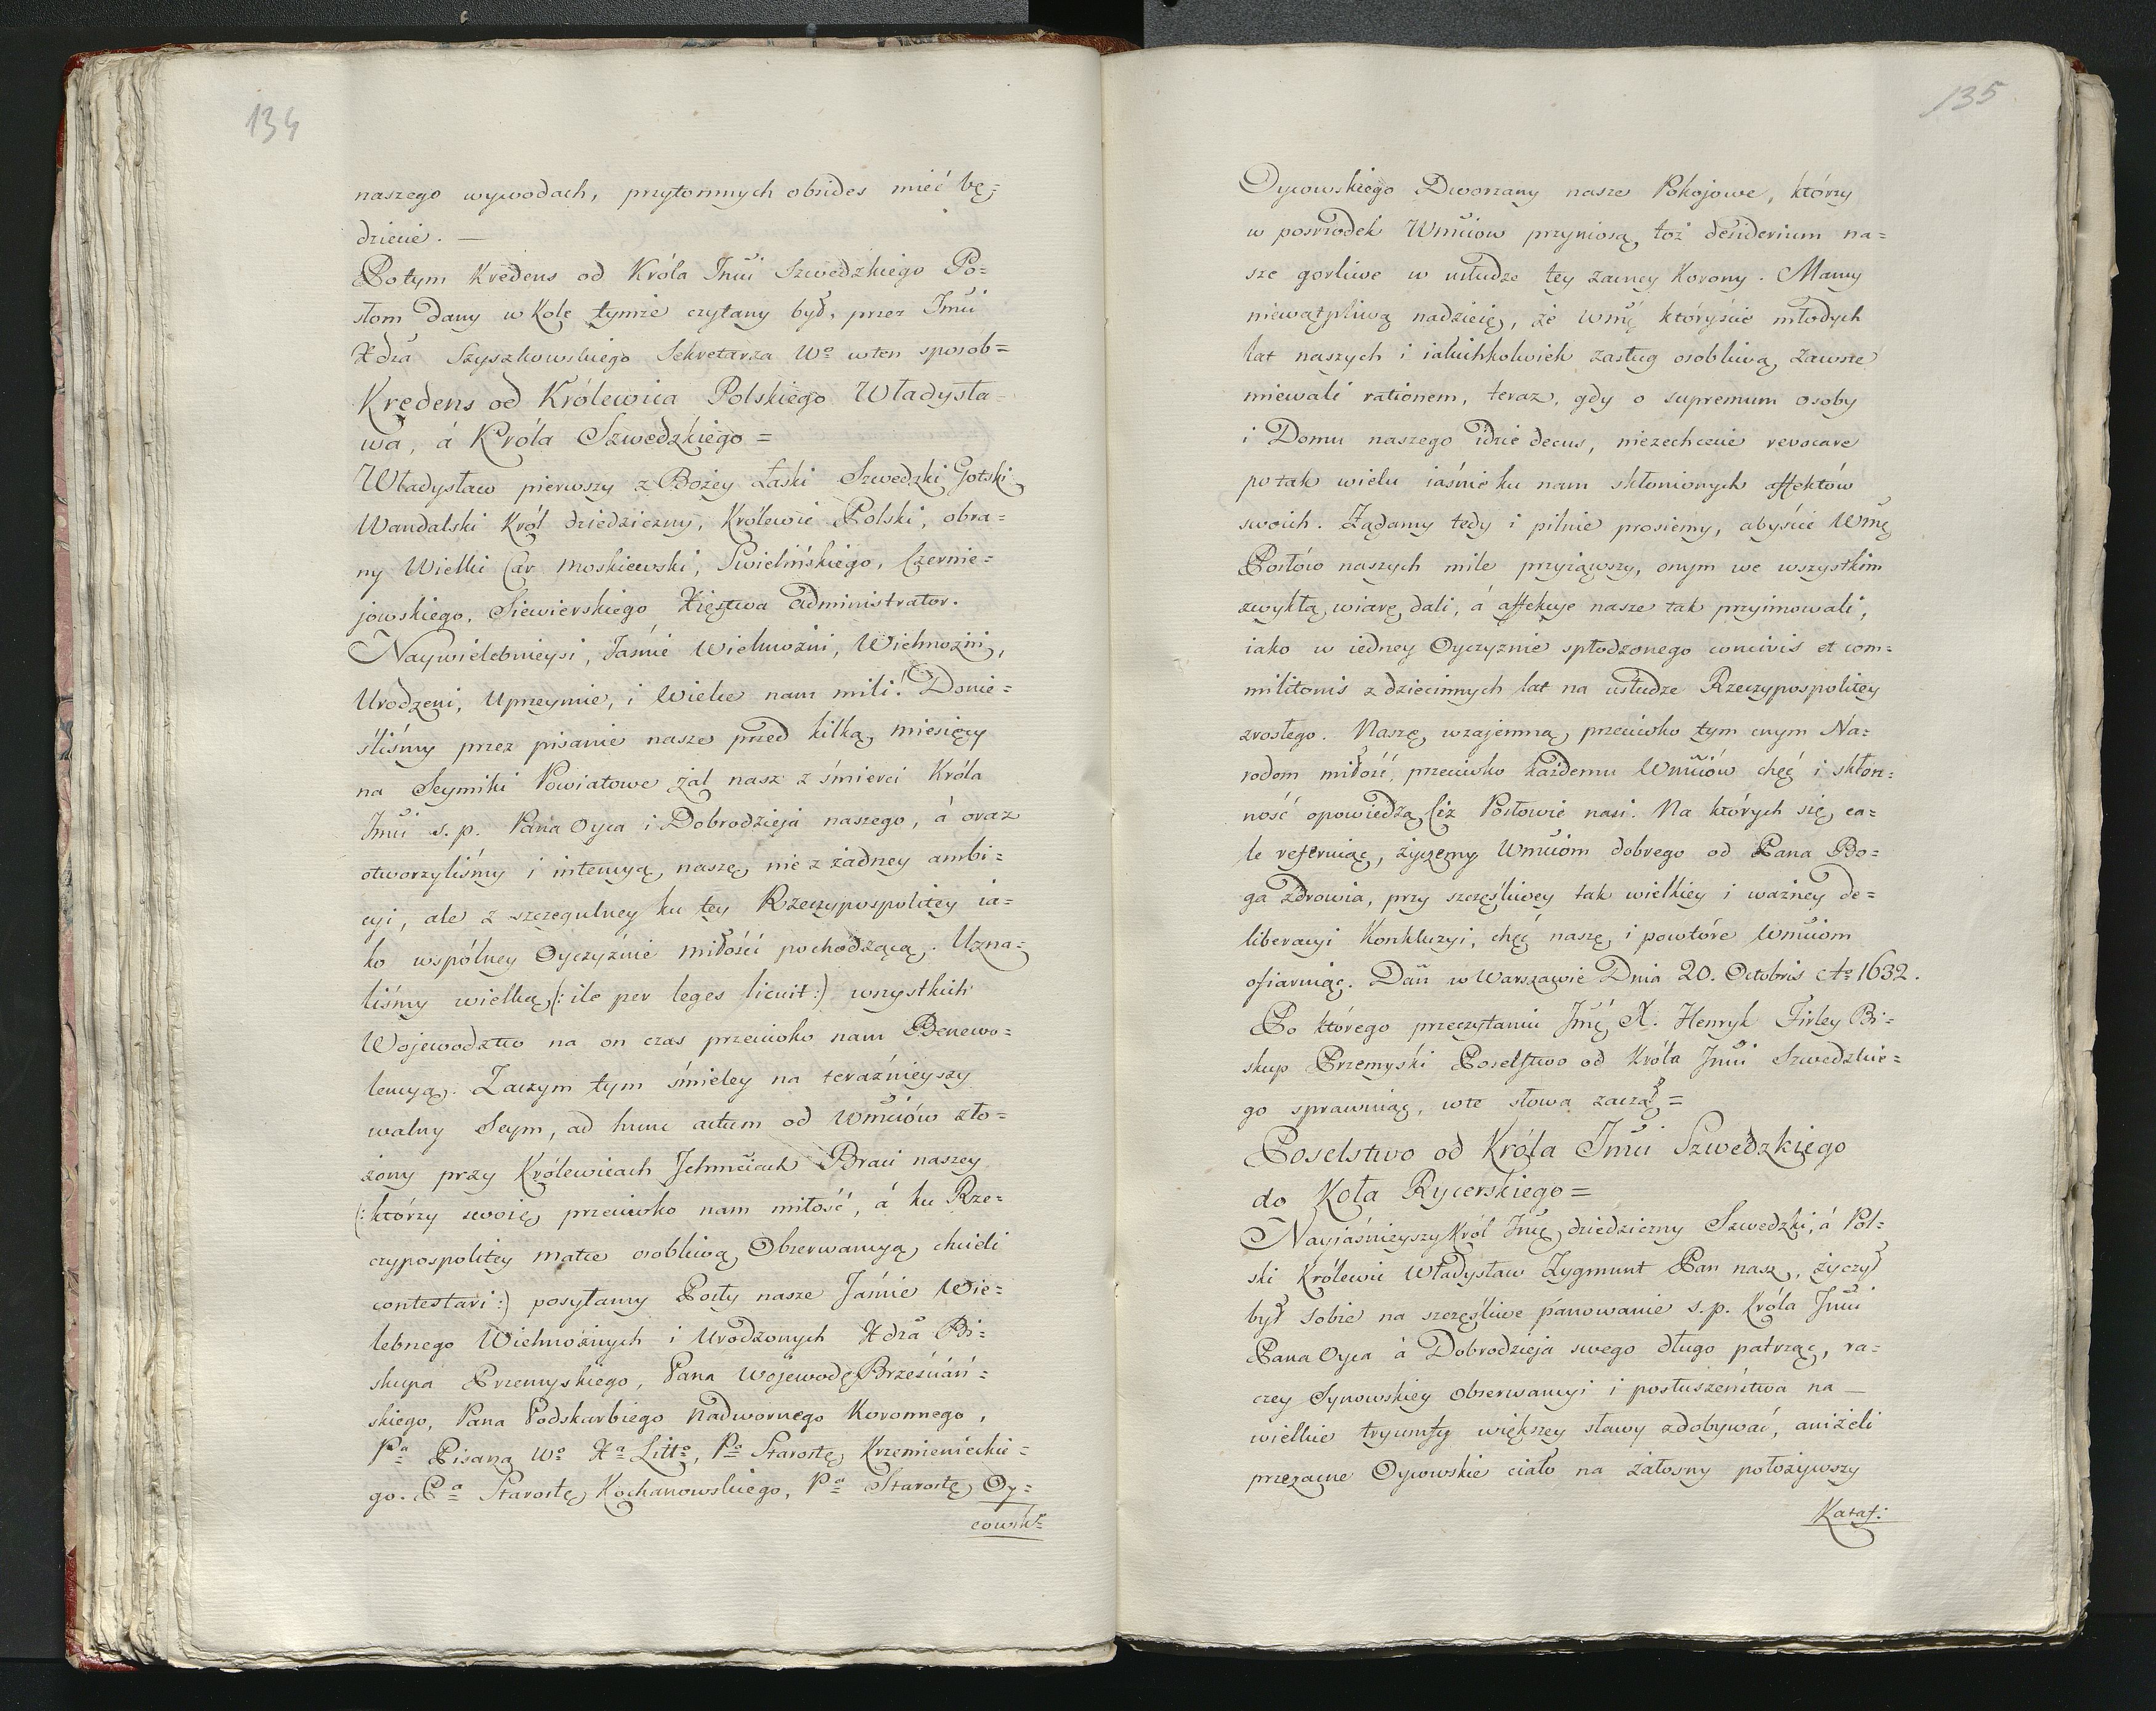 134
naszego wywodach, przytomnych obsides mieć bę=
dziecie. —
Potym Kredens od Króla Jmći Szwedzkiego Po=
słom dany w Kole tymże czytany był, przez Jmći
Xdza Szyszkowskiego Sekretarza Wo wten sposób=
Kredens od Królewica Polskiego Władysła=
wa, á Króla Szwedzkiego =
Władysław pierwszy z Bożey Łaski Szwedzki Gotski
Wandalski Król dziedziczny, Królewic Polski, obra=
ny Wielki Car Moskiewski, Swielińskiego, Czernie=
jowskiego, Siewierskiego Xięstwa Administrator.
Naywielebnieysi, Jaśnie Wielmożni, Wielmożni,
Urodzeni, Uprzeymie, i Wielce nam mili! Donie=
śliśmy przez pisanie nasze przed kilką miesięcy
na Seymiki Powiatowe żal nasz z śmierci Króla
Jmći s. p. Pana Oyca i Dobrodzieja naszego, á oraz
otworzyliśmy i intencyą naszę, nie z żadney ambi=
cyi, ale z szczegulney ku tey Rzeczypospolitey ia=
ko wspólney Oyczyźnie miłości pochodzącą. Uzna=
liśmy wielką (: ile per leges licuit :) wszystkich
Wojewodztw na on czas przeciwko nam Benewo=
lencyą. Zaczym tym śmieley na teraźnieyszy
walny Seym, ad hunc actum od Wmciów zło=
żony przy Królewicach Jchmciach Braci naszey
(: którzy swoię przeciwko nam miłość, á ku Rze=
czypospolitey matce osobliwą Obserwancyą chcieli
contestari :) posyłamy Posły nasze Jaśnie Wie=
lebnego Wielmożnych i Urodzonych Xdza Bi=
skupa Przemyskiego, Pana Wojewodę Brześćiań=
skiego, Pana Podskarbiego Nadwornego Koronnego,
Pa Pisarza Wo Xa Litto, Pa Starostę Krzemieniecki=
go. Pa Starostę Kochanowskiego, Pa Starostę Oy=
cowsko
135
Oycowskiego Dworzany nasze Pokojowe, którzy
w posrzodek Wmciow przyniosą toż desiderium na=
sze gorliwe w usłudze tey zacney Korony. Mamy
niewątpliwą nadzieię, że Wmć któryście młodych
lat naszych i iakichkolwiek zasług osobliwą zawsze
miewali rationem, teraz, gdy o supremum osoby
i Domu naszego idzie decus, niezechcecie revocare
po tak wielu iaśnie ku nam skłonionych affektów
swoich. Żądamy tedy i pilnie prosiemy, abyście Wmć
Posłów naszych mile przyiąwszy, onym we wszystkim
zwykłą wiarę dali, á affekcye nasze tak przyimowali,
iako w iedney Oyczyznie spłodzonego concivis et com=
militonis z dziecinnych lat na usłudze Rzeczypospolitey
zrosłego. Naszę wzajemną przeciwko tym cnym Na=
rodom miłość, przeciwko każdemu Wmciów chęć i skłon=
ność opowiedzą Ciż Posłowie nasi. Na których się ca=
le referuiąc, życzemy Wmciom dobrego od Pana Bo=
ga Zdrowia, przy szczęśliwey tak wielkiey i ważney de=
liberacyi Konkluzyi, chęć naszę i powtóre Wmciom
ofiaruiąc. Dan w Warszawie Dnia 20. Octobris Ao 1632.
Po którego przeczytaniu Jmć X. Henryk Firley Bi=
skup Przemyski Poselstwo od Króla Jmći Szwedzkie=
go sprawuiąc, wte słowa zaczął =
Poselstwo od Króla Jmći Szwedzkiego
do Koła Rycerskiego =
Nayiaśnieyszy Król Jmć dziedziczny Szwedzki, á Pol=
ski Królewic Władysław Zygmunt Pan nasz, życzył
był sobie na szczęśliwe panowanie s. p. Króla Jmći
Pana Oyca á Dobrodzieja swego długo patrząc, ra=
czey Synowskiey Obserwancyi i posłuszeństwa na —
wielkie tryumfy większey sławy zdobywać, aniżeli
przezacne Oycowskie ciało na żałosny położywszy
Kataf: